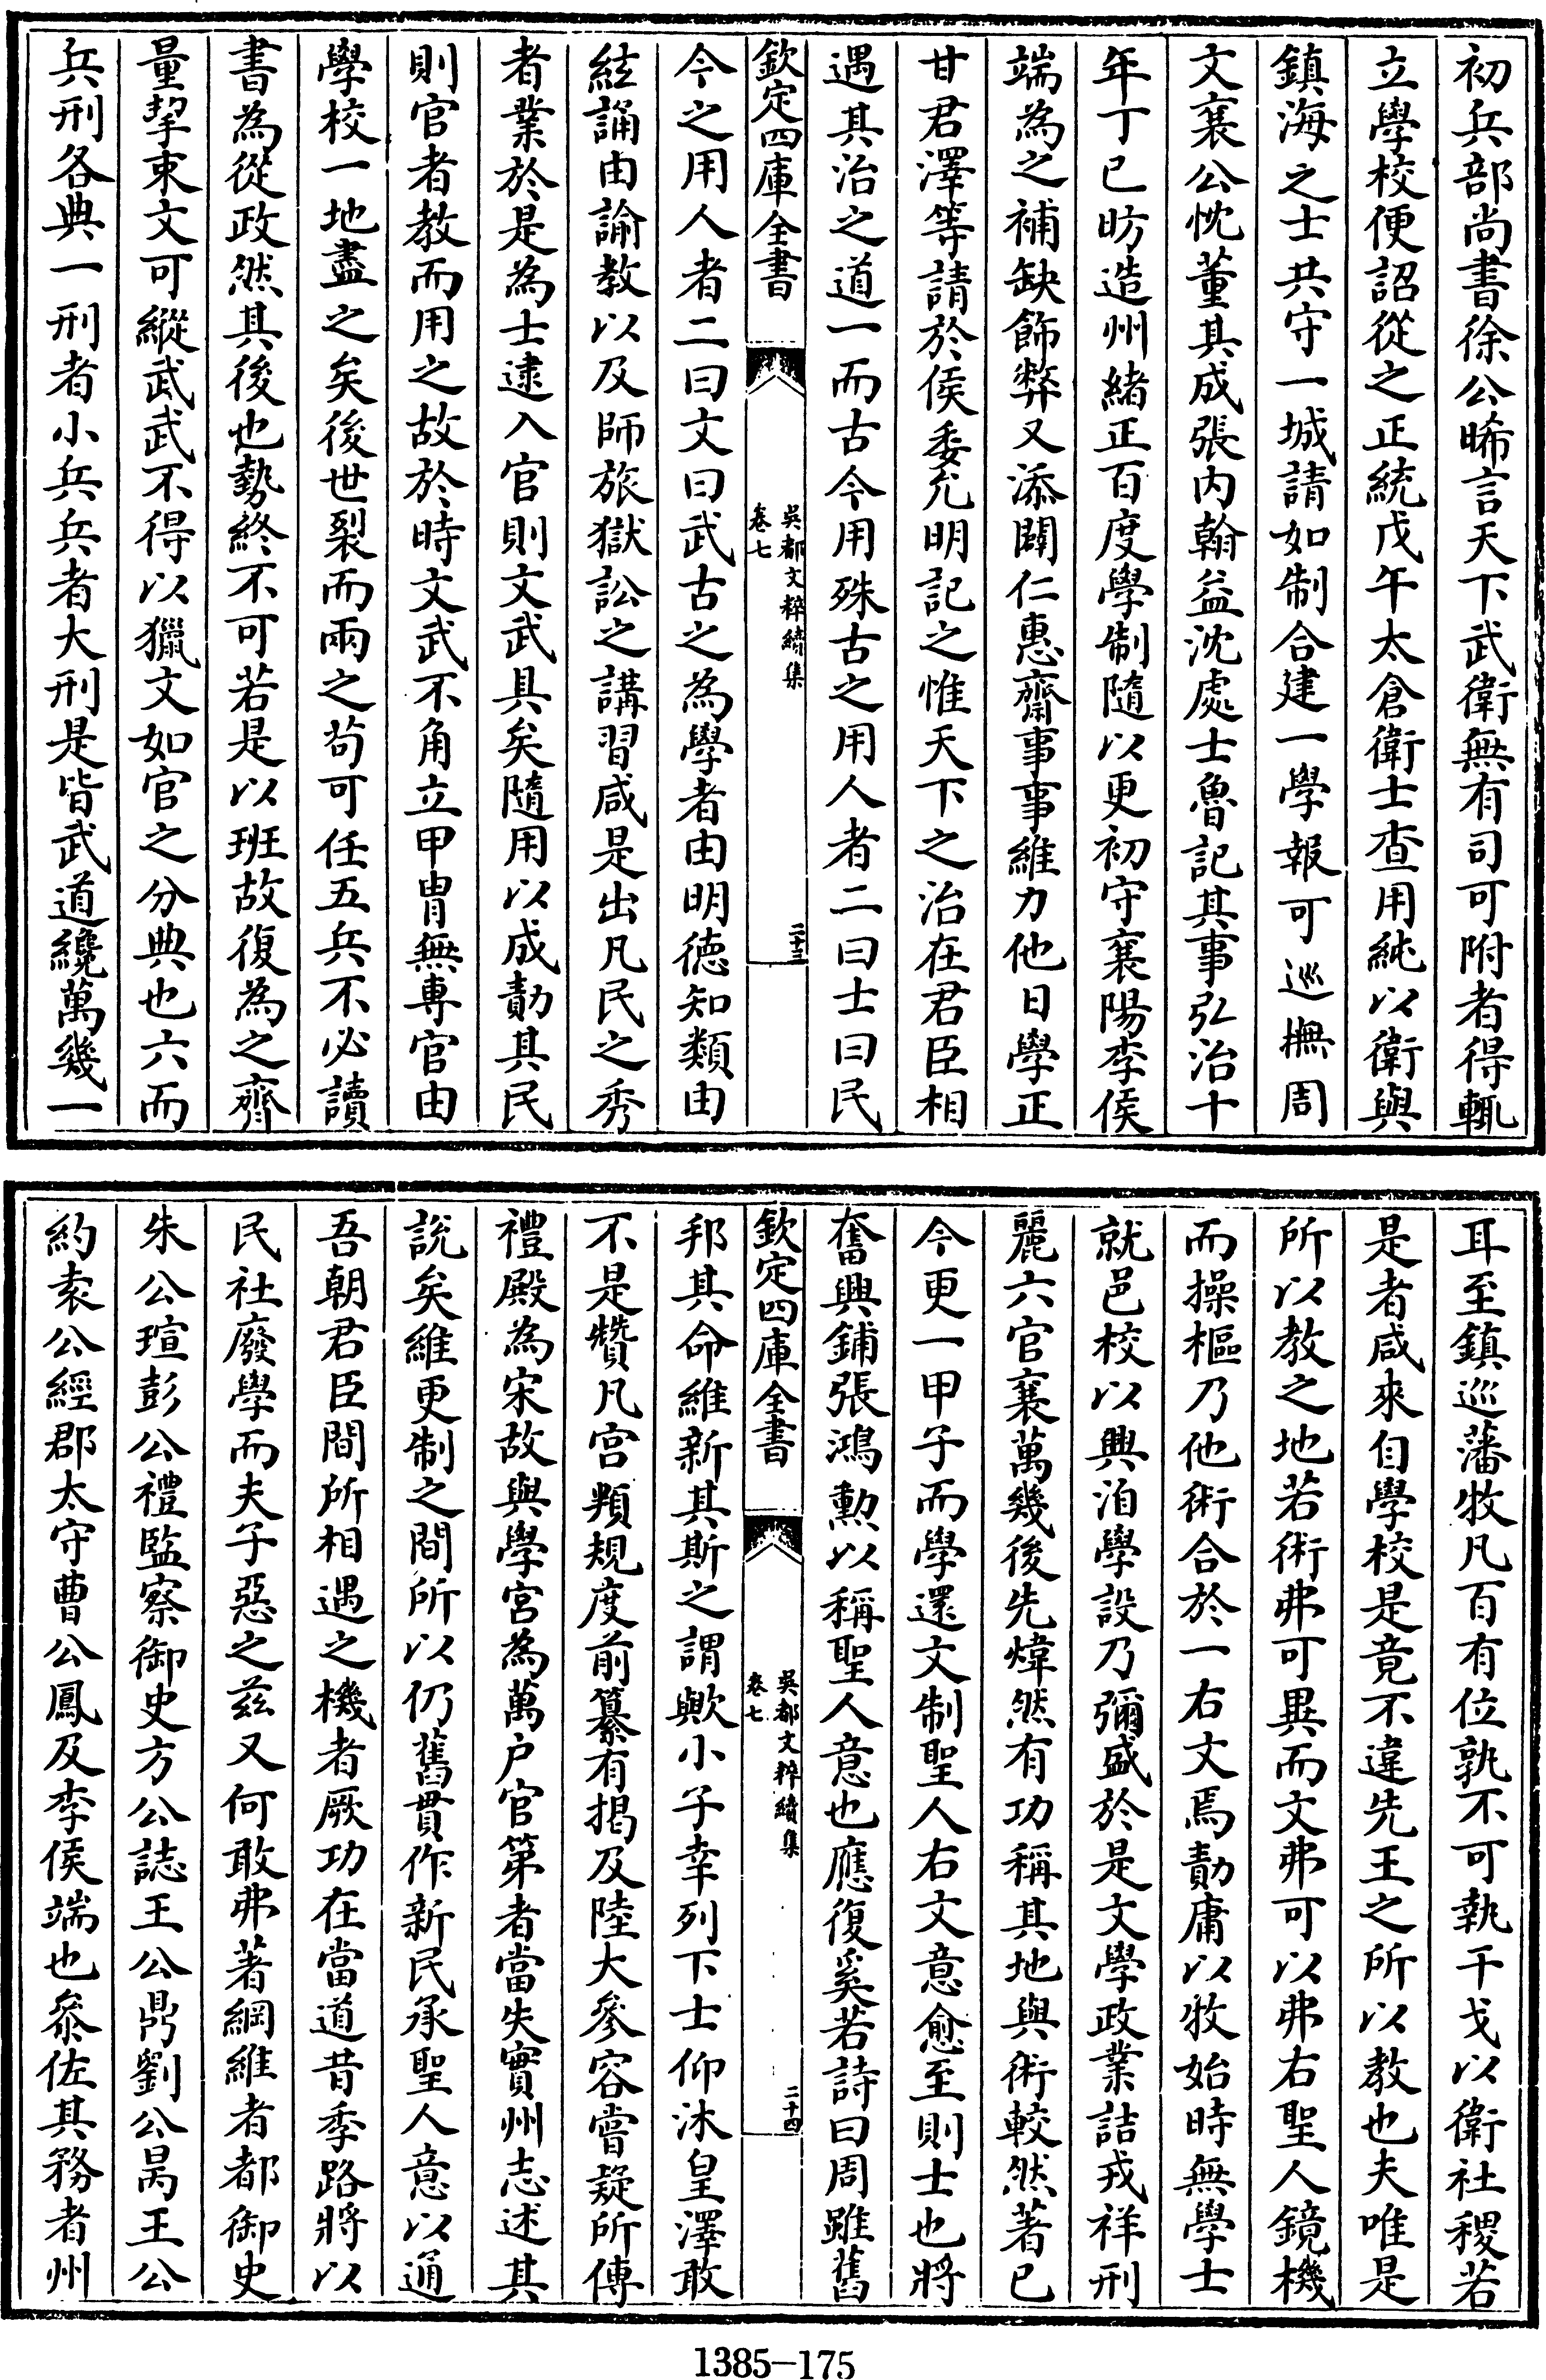 初兵部尚書徐公晞言天下武衛無有司可附者得輒
立學校便詔從之正統戊午太倉衛士查用純以衛與
鎮海之士共守一城請如制合建一學報可巡撫周
文襄公忱董其成張內翰益沈處士魯記其事弘治十
年丁巳昉造州緒正百度學制隨以更初守襄陽李侯
端為之補缺飾弊又添闢仁惠齋事事維力他日學正
甘君澤等請於侯委允明記之惟天下之治在君臣相
遇其治之道一而古今用殊古之用人者二曰士曰民
欽定四庫全書
吳都文粹續集
卷七
二十三
今之用人者二曰文曰武古之為學者由明德知類由
絃誦由諭教以及師旅獄訟之講習咸是出凡民之秀
者業於是為士逮入官則文武具矣隨用以成勣其民
則官者教而用之故於時文武不角立甲胄無專官由
學校一地盡之矣後世裂而兩之苟可任五兵不必讀
書為從政然其後也勢終不可若是以班故復為之齊
量挈束文可縱武武不得以獵文如官之分典也六而
兵刑各典一刑者小兵兵者大刑是皆武道纔萬幾一
耳至鎮巡藩牧凡百有位孰不可執干戈以衛社稷若
是者咸來自學校是竟不違先王之所以教也夫唯是
所以教之地若術弗可異而文弗可以弗右聖人鏡機
而操樞乃他術合於一右文焉勣庸以牧始時無學士
就邑校以興洎學設乃彌盛於是文學政業詰戎祥刑
麗六官襄萬幾後先煒然有功稱其地與術較然著已
今更一甲子而學還文制聖人右文意愈至則士也將
奮興鋪張鴻勲以稱聖人意也應復奚若詩曰周雖舊
欽定四庫全書
吳都文粹續集
卷七
二十四
邦其命維新其斯之謂歟小子幸列下士仰沐皇澤敢
不是贊凡宮頖規度前纂有揭及陸大參容嘗疑所傳
禮殿為宋故與學宮為萬户官第者當失實州志述其
說矣維更制之間所以仍舊貫作新民承聖人意以通
吾朝君臣間所相遇之機者厥功在當道昔季路將以
民社廢學而夫子惡之兹又何敢弗著綱維者都御史
朱公瑄彭公禮監察御史方公誌王公鼎劉公昺王公
約袁公經郡太守曹公鳳及李侯端也叅佐其務者州
1385-175